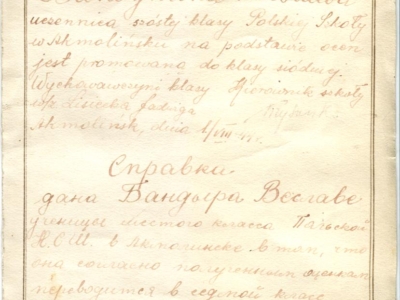 uczennica szóstej klasy Polskiej Szkoły
w Akmolińsku na podstawie ocen
jest promowana do klasy siódmej.
Wychowawczyni klasy Kierownik szkoły
w/z Lisiecka Jadwiga
Akmolińsk, dnia
Справки
дана Бандыра Веславе
ученицы шестого класса Польской
Н.С.Ш. в Акмолинске в том, что
она согласно полученным оценкам
переводится в седмой класс